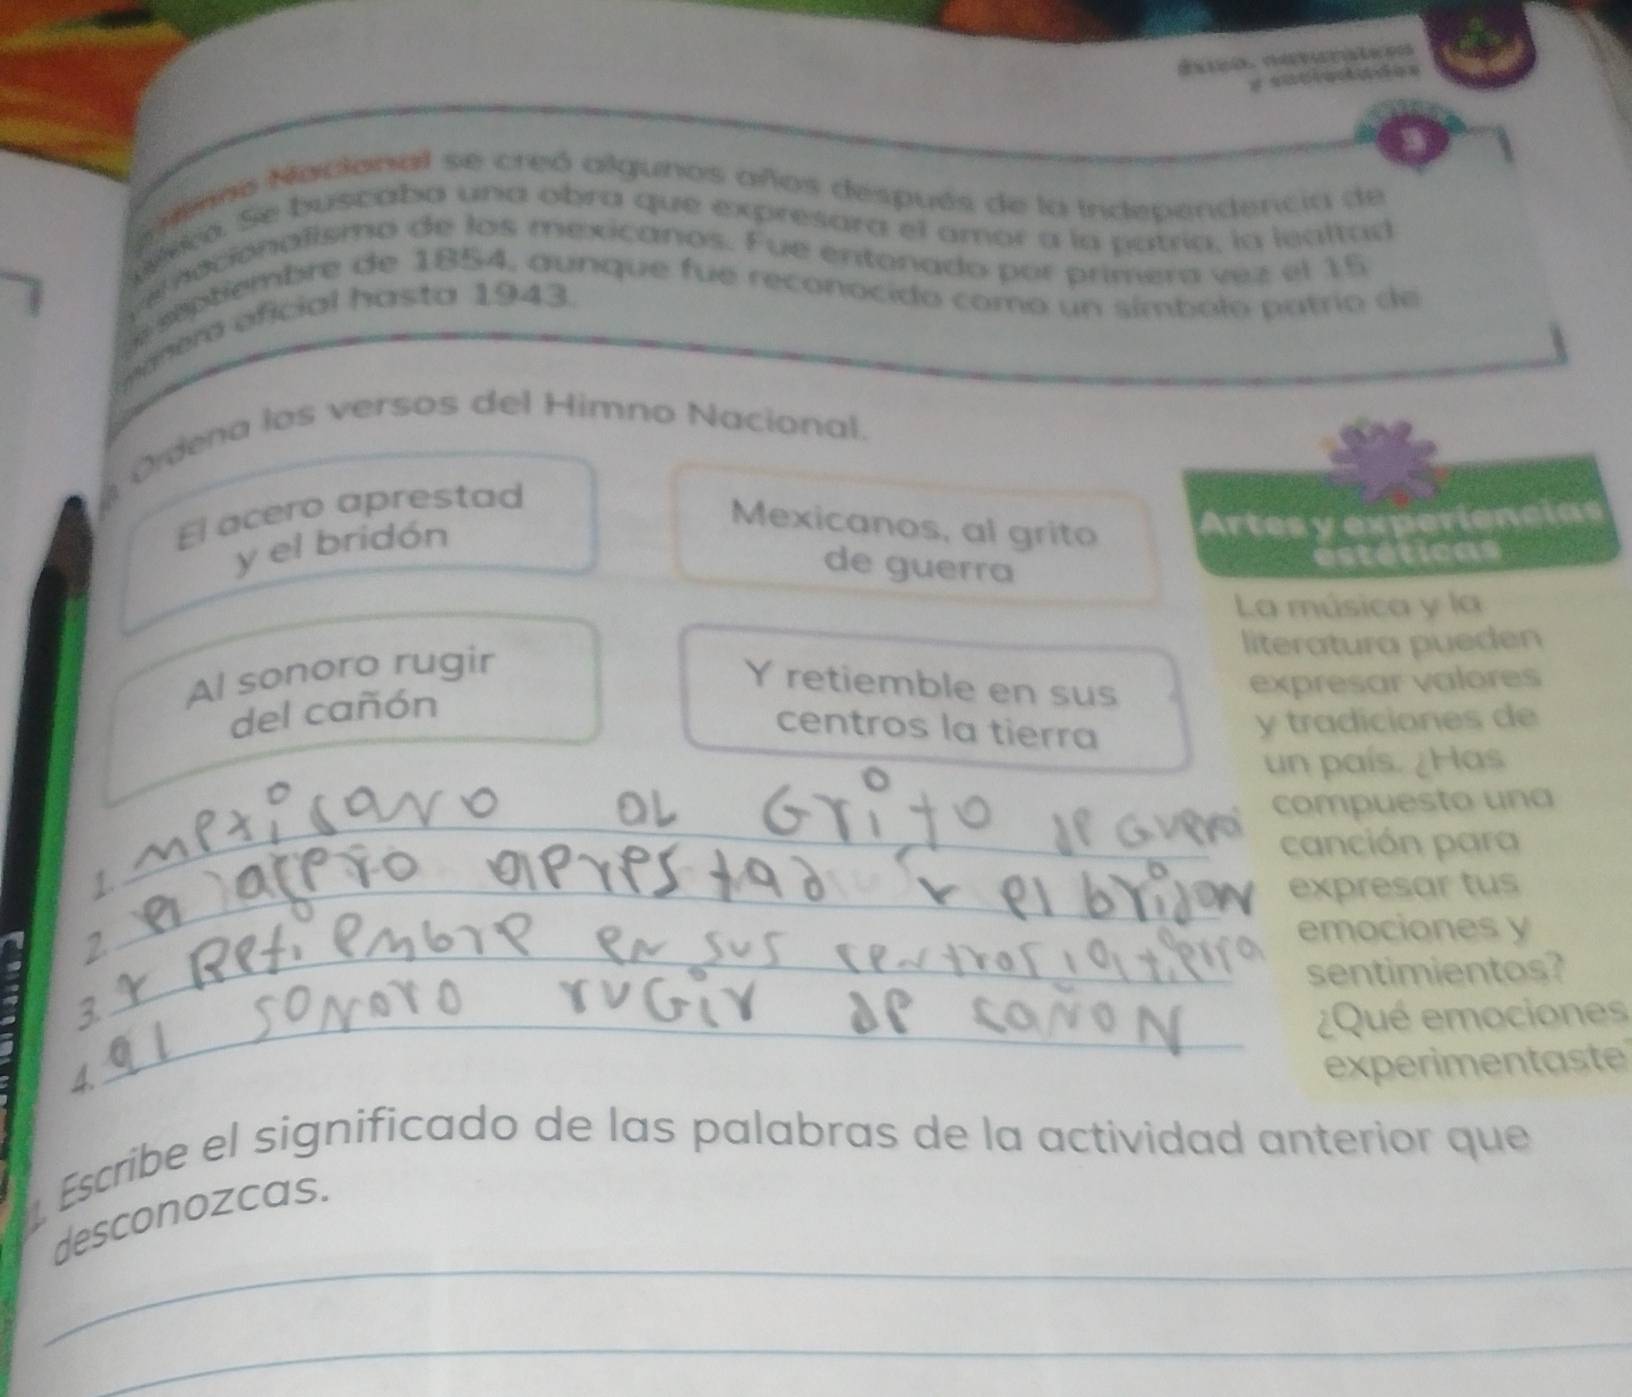 Ética, naturaleza
y sociedades
3
Himno Nacional se creó algunos años después de la independencia de
México. Se buscaba una obra que expresara el amor a la patria, la lealtad
y el nacionalismo de los mexicanos. Fue entonado por primera vez el 15
de septiembre de 1854, aunque fue reconocido como un símbolo patrio de
manera oficial hasta 1943.
Ordena los versos del Himno Nacional.
El acero aprestad
y el bridón
Mexicanos, al grito
de guerra
Al sonoro rugir
del cañón
Y retiemble en sus
centros la tierra
1. mexicano al Grito de Guerra
2. el acero aprestad y el bridon
3. y Retiembre en sus centros la tierra
4. al sonoro ruGir de cañoN
Escribe el significado de las palabras de la actividad anterior que
desconozcas.
Artes y experiencias
estéticas
La música y la
literatura pueden
expresar valores
y tradiciones de
un país. ¿Has
compuesto una
canción para
expresar tus
emociones y
sentimientos?
¿Qué emociones
experimentaste